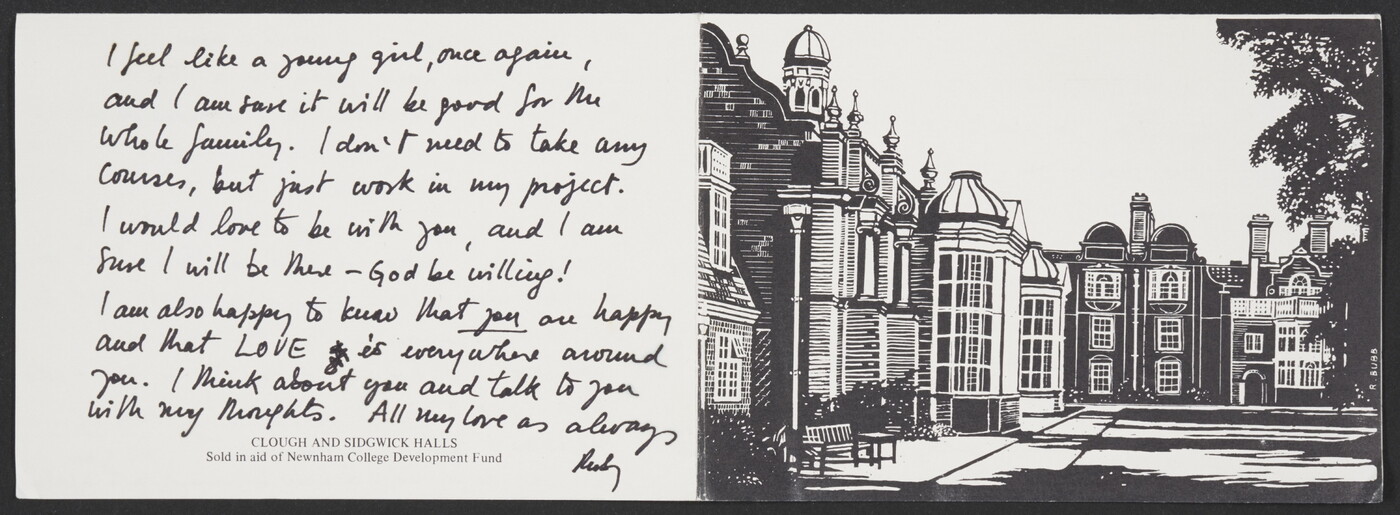 I feel like a young girl, once again,
and I am sure it will be good for the
whole family. I don't need to take any
Courses, but just work in my project.
I would love to be with you, and I am
Sure I will be there – God be willing!
I am also happy to know that you are happy
and that LOVE is everywhere around
you. I think about you and talk to you
with my thoughts. All my love as always
CLOUGH AND SIDGWICK HALLS
Sold in aid of Newnham College Development Fund
R. BUBB